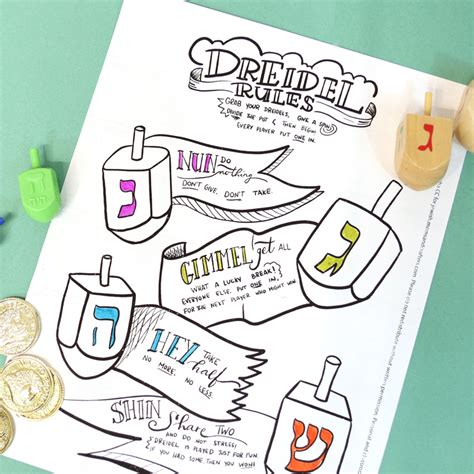 DREIDEL
RULES
GRAB YOUR DREIDELS, GIVE A SPIN
DIVIDE THE POT & THEN BEGIN
EVERY PLAYER PUT ONE IN.
NUN DO
nothing
DON'T GIVE, DON'T TAKE.
נ
GIMMEL get ALL
WHAT A LUCKY BREAK!
EVERYONE ELSE PUT ONE IN,
FOR THE NEXT PLAYER WHO MIGHT WIN.
ג
ג
HEY TAKE
half
NO MORE, NO LESS.
ה
SHIN Share TWO
AND DO NOT STRESS!
DREIDEL IS PLAYED JUST FOR FUN
IF YOU HAD SOME THEN YOU WON!
ש